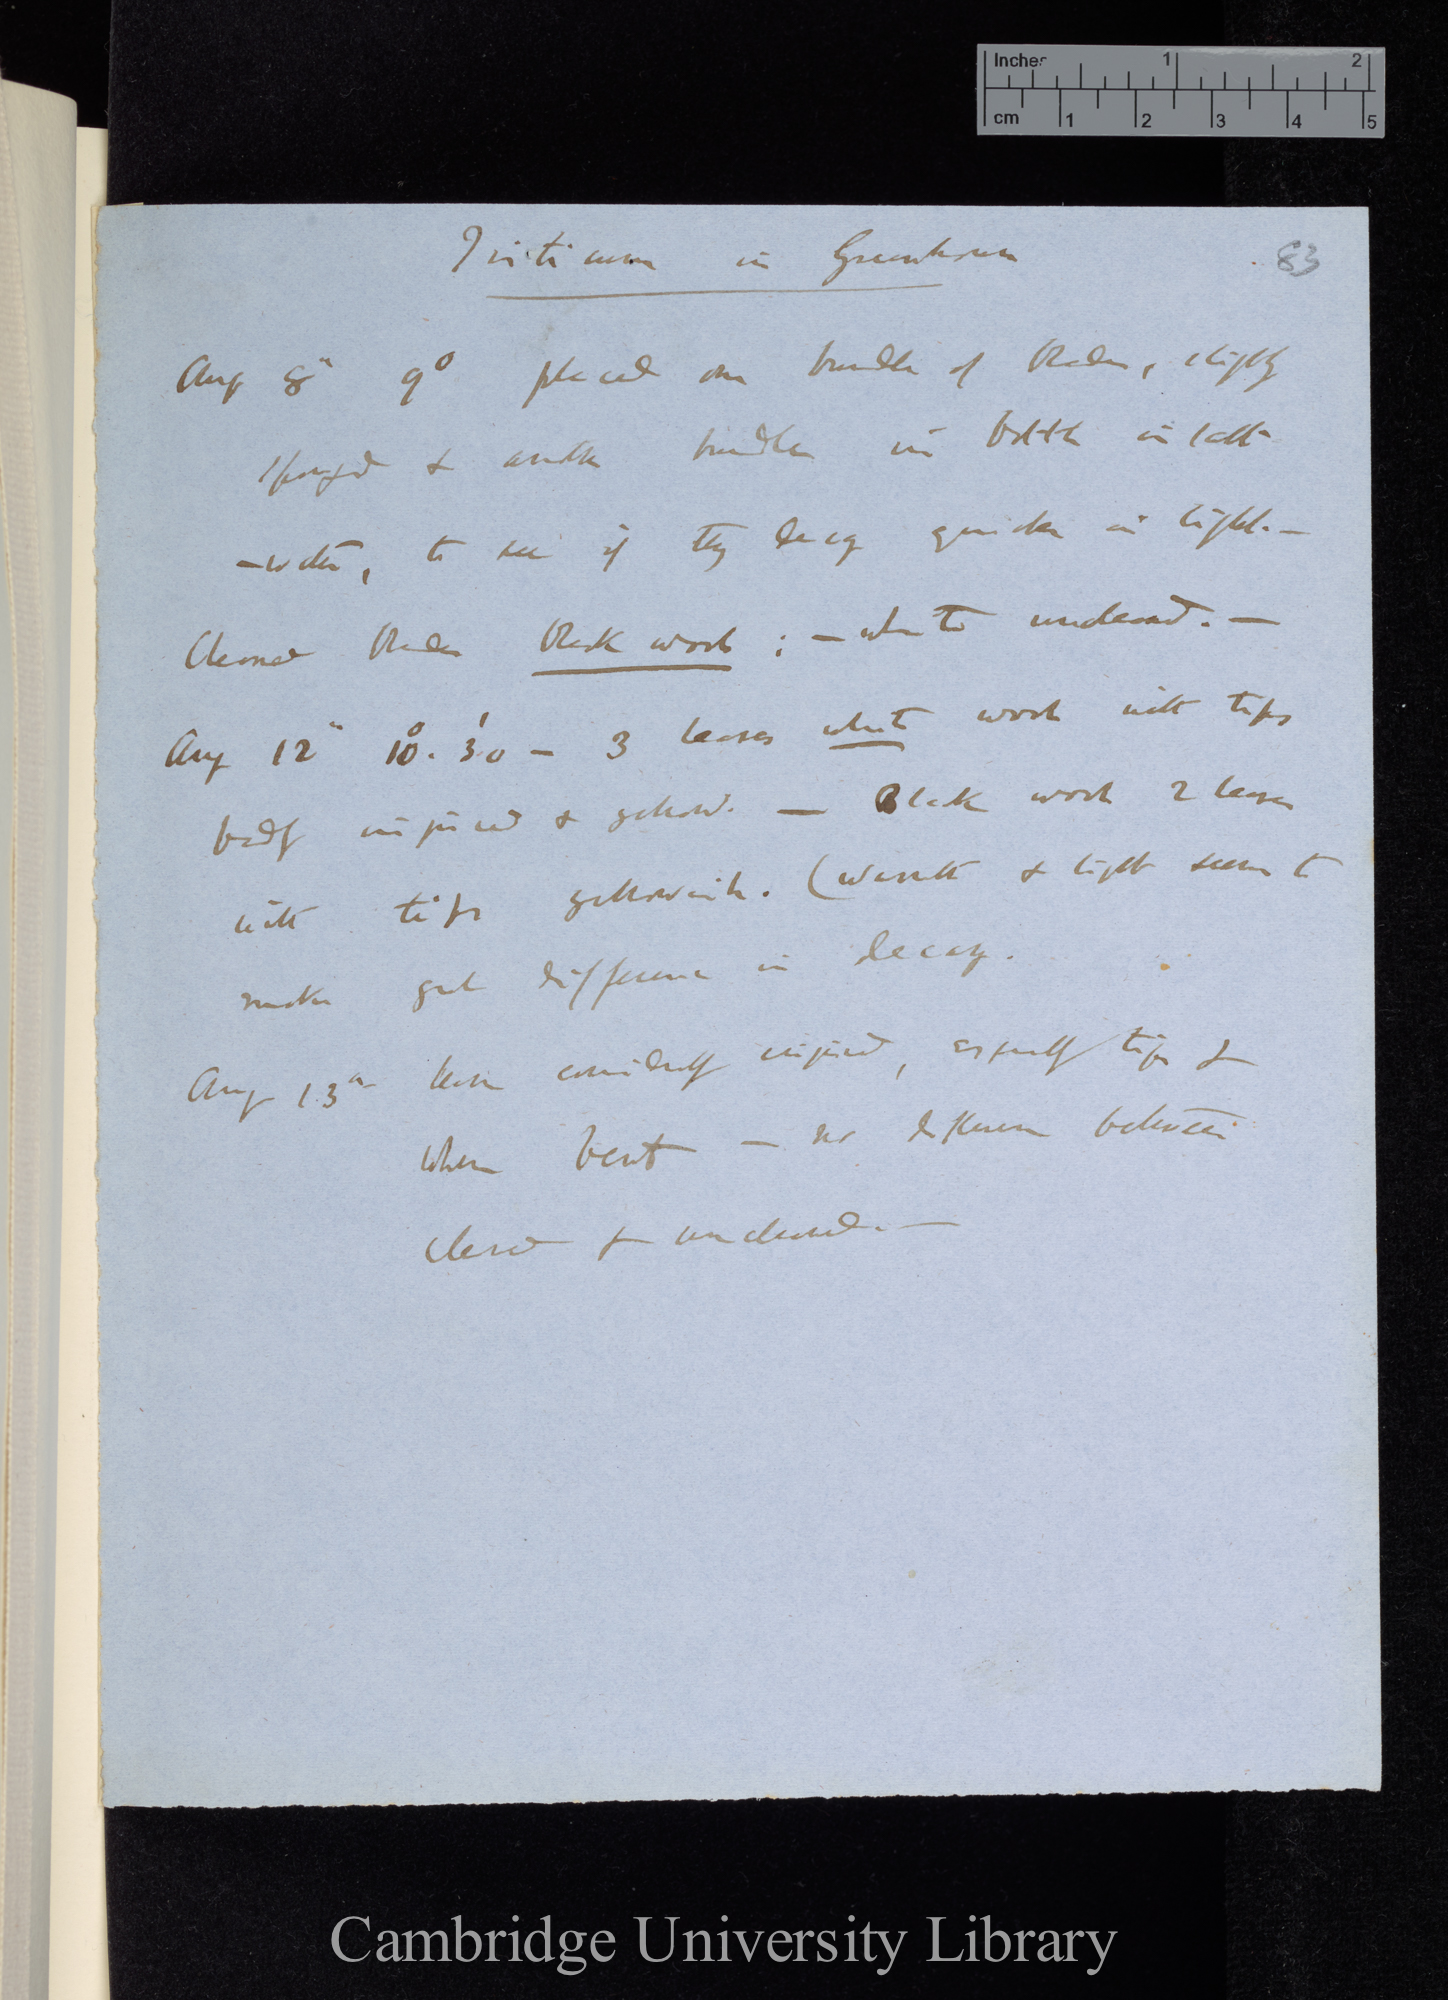 Inches 1 2
cm 1 2 3 4 5
Triticum in Greenhouse
83
Aug 8th 9° placed one bundle of blades, slightly
sponged & another bundle in bottle in salt
-water, to see if they decay quicker in light. —
Cleaned blades black wool; — white uncleaned. —
Aug 12th 10°. 30' — 3 leaves white wool with tips
badly injured & yellow. — Black wool 2 leaves
with tips yellowish. (warmth & light seem to
make great difference in decay.
Aug 13th leaves considerably injured, especially tips &
where bent — no difference between
cleaned & uncleaned. —
Cambridge University Library